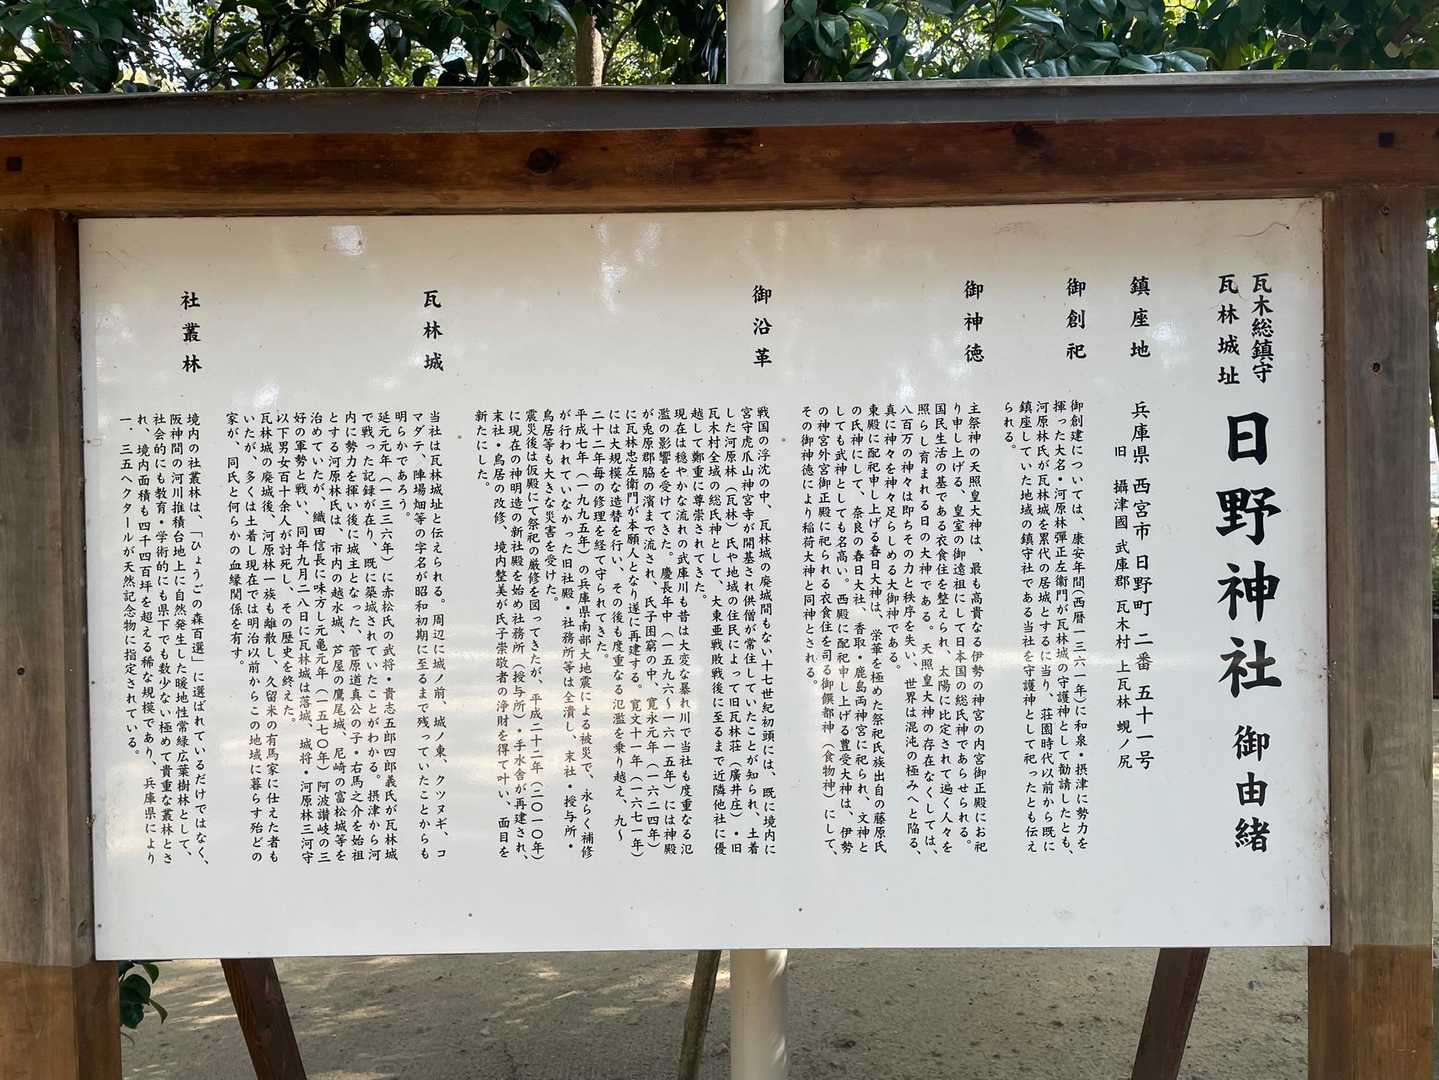 瓦木総鎮守
瓦林城址
日野神社 御由緒
鎮座地
兵庫県 西宮市 日野町 二番 五十一号
旧 攝津國 武庫郡 瓦木村 上瓦林 蜆ノ尻
御創祀
御創建については、康安年間(西暦一三六一年)に和泉・摂津に勢力を
揮った大名・河原林弾正左衛門が瓦林城の守護神として勧請したとも、
河原林氏が瓦林城を累代の居城とするに当り、荘園時代以前から既に
鎮座していた地域の鎮守社である当社を守護神として祀ったとも伝え
られる。
御神徳
主祭神の天照皇大神は、最も高貴なる伊勢の神宮の内宮御正殿にお祀
り申し上げる、皇室の御遠祖にして日本国の総氏神であらせられる。
国民生活の基である衣食住を整えられ、太陽に比定されて遍く人々を
照らし育まれる日の大神である。天照皇大神の存在なくしては、
八百万の神々は即ちその力と秩序を失い、世界は混沌の極みへと陥る、
真に神々を神々足らしめる大御神である。
東殿に配祀申し上げる春日大神は、栄華を極めた祭祀氏族出自の藤原氏
の氏神にして、奈良の春日大社、香取・鹿島両神宮に祀られ、文神と
しても武神としても名高い。西殿に配祀申し上げる豊受大神は、伊勢
の神宮外宮御正殿に祀られる衣食住を司る御饌都神(食物神)にして、
その御神徳により稲荷大神と同神とされる。
御沿革
戦国の浮沈の中、瓦林城の廃城間もない十七世紀初頭には、既に境内に
宮守虎爪山神宮寺が開基され供僧が常住していたことが知られ、土着
した河原林(瓦林)氏や地域の住民によって旧瓦林荘(廣井庄)・旧
瓦木村全域の総氏神として、大東亜戦敗戦後に至るまで近隣他社に優
越して鄭重に尊崇されてきた。
現在は穏やかな流れの武庫川も昔は大変な暴れ川で当社も度重なる氾
濫の影響を受けてきた。慶長年中(一五九六〜一六一五年)には神殿
が兎原郡脇の濱まで流され、氏子困窮の中、寛永元年(一六二四年)
に瓦林忠左衛門が本願人となり遂に再建する。寛文十一年(一六七一年)
には大規模な造替を行い、その後も度重なる氾濫を乗り越え、九〜
二十二年毎の修理を経て守られてきた。
平成七年(一九九五年)の兵庫県南部大地震による被災で、永らく補修
が行われていなかった旧社殿・社務所等は全潰し、末社・授与所・
鳥居等も大きな災害を受けた。
震災後は仮殿にて祭祀の厳修を図ってきたが、平成二十二年(二〇一〇年)
に現在の神明造の新社殿を始め社務所(授与所)・手水舎が再建され、
末社・鳥居の改修、境内整美が氏子崇敬者の浄財を得て叶い、面目を
新たにした。
瓦林城
当社は瓦林城址と伝えられる。周辺に城ノ前、城ノ東、クツヌギ、コ
マダテ、陣場畑等の字名が昭和初期に至るまで残っていたことからも
明らかであろう。
延元元年(一三三六年)に赤松氏の武将・貴志五郎四郎義氏が瓦林城
で戦った記録が在り、既に築城されていたことがわかる。摂津から河
内に勢力を揮い後に城主となった、菅原道真公の子・右馬之介を始祖
とする河原林氏は、市内の越水城、芦屋の鷹尾城、尼崎の富松城等を
治めていたが、織田信長に味方し元亀元年(一五七〇年)阿波讃岐の三
好の軍勢と戦い、同年九月二八日に瓦林城は落城、城将・河原林三河守
以下男女百十余人が討死し、その歴史を終えた。
瓦林城の廃城後、河原林一族も離散し、久留米の有馬家に仕えた者も
いたが、多くは土着し現在では明治以前からこの地域に暮らす殆どの
家が、同氏と何らかの血縁関係を有す。
社叢林
境内の社叢林は、「ひょうごの森百選」に選ばれているだけではなく、
阪神間の河川推積台地上に自然発生した暖地性常緑広葉樹林として、
社会的にも教育・学術的にも県下でも数少ない極めて貴重な叢林とさ
れ、境内面積も四千四百坪を超える稀な規模であり、兵庫県により
一.三五ヘクタールが天然記念物に指定されている。